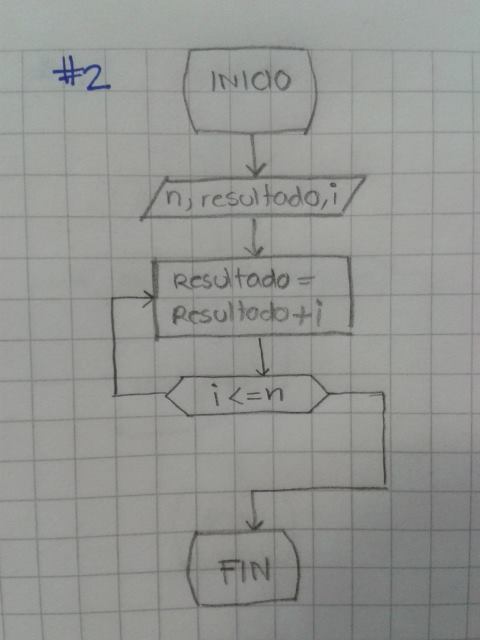 #2
INICIO
n, resultado, i
Resultado =
Resultado + i
i <= n
FIN